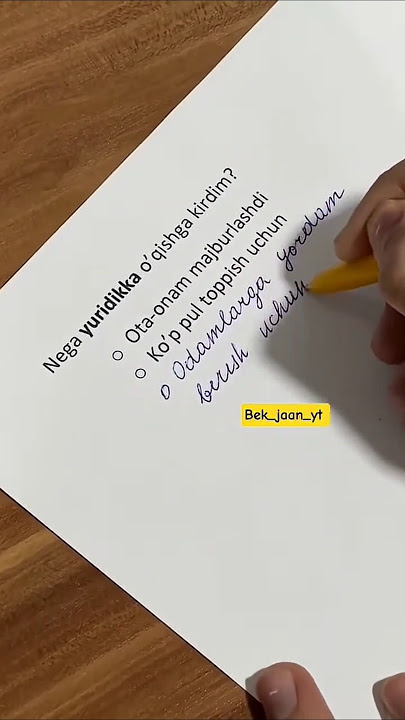 Nega yuridikka o'qishga kirdim?
o Ota-onam majburlashdi
o Ko'p pul toppish uchun
o Odamlarga yordam
berish uchun
Bek_jaan_yt